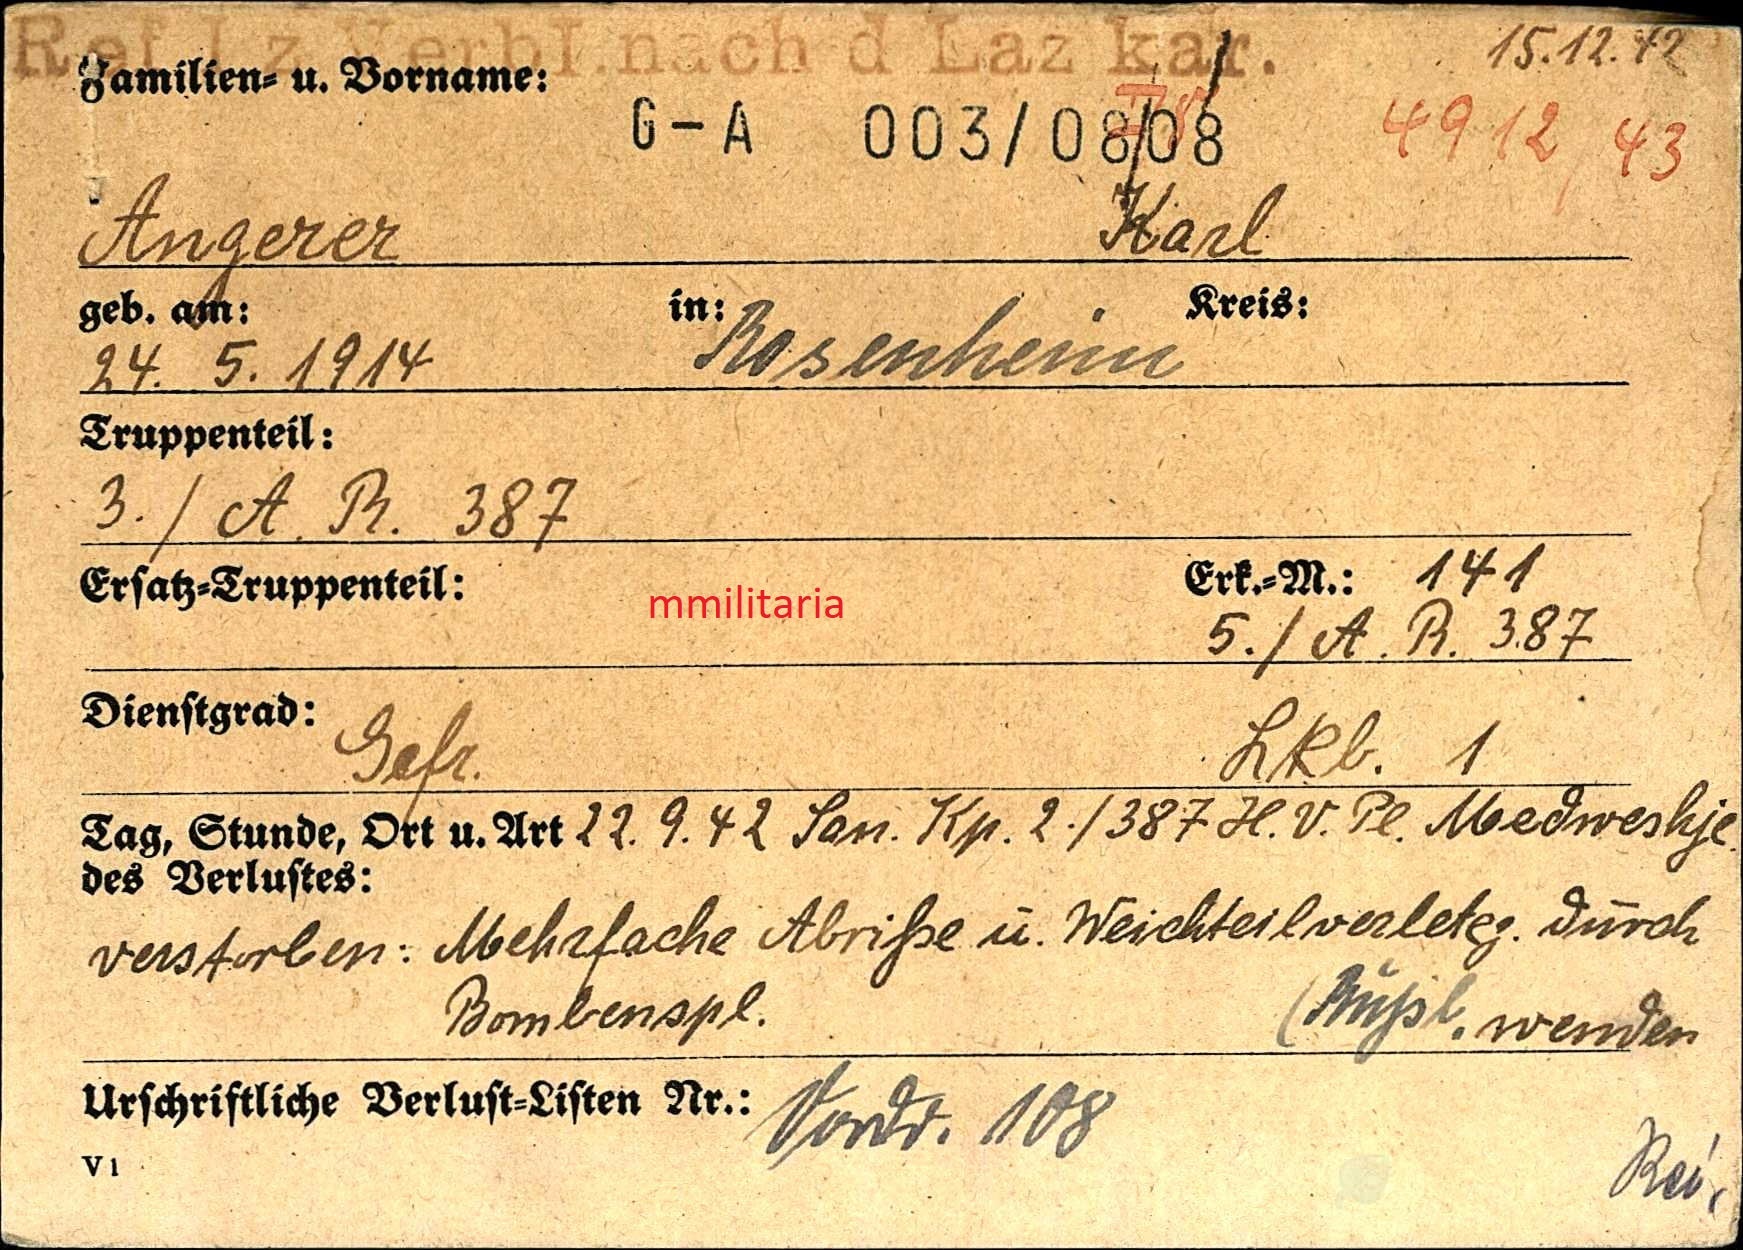 Ref I z Verbl. nach d Laz kar.
15.12.42
Familien- u. Vorname:
G-A 003/0808
4912/43
Angerer Karl
geb. am: in: Kreis:
24. 5. 1914 Rosenheim
Truppenteil:
3./ A. R. 387
Ersatz-Truppenteil: Erk.-M.: 141
mmilitaria
5./ A. R. 387
Dienstgrad:
Gefr. Lkb. 1
Tag, Stunde, Ort u. Art 22. 9. 42 San. Kp. 2./387 H. V. Pl. Medweshje
des Verlustes:
verstorben: Mehrfache Abriße u. Weichteilverletzg. durch
Bombenspl. wenden
Urschriftliche Verlust-Listen Nr.: Vordr. 108
V 1
Rei.